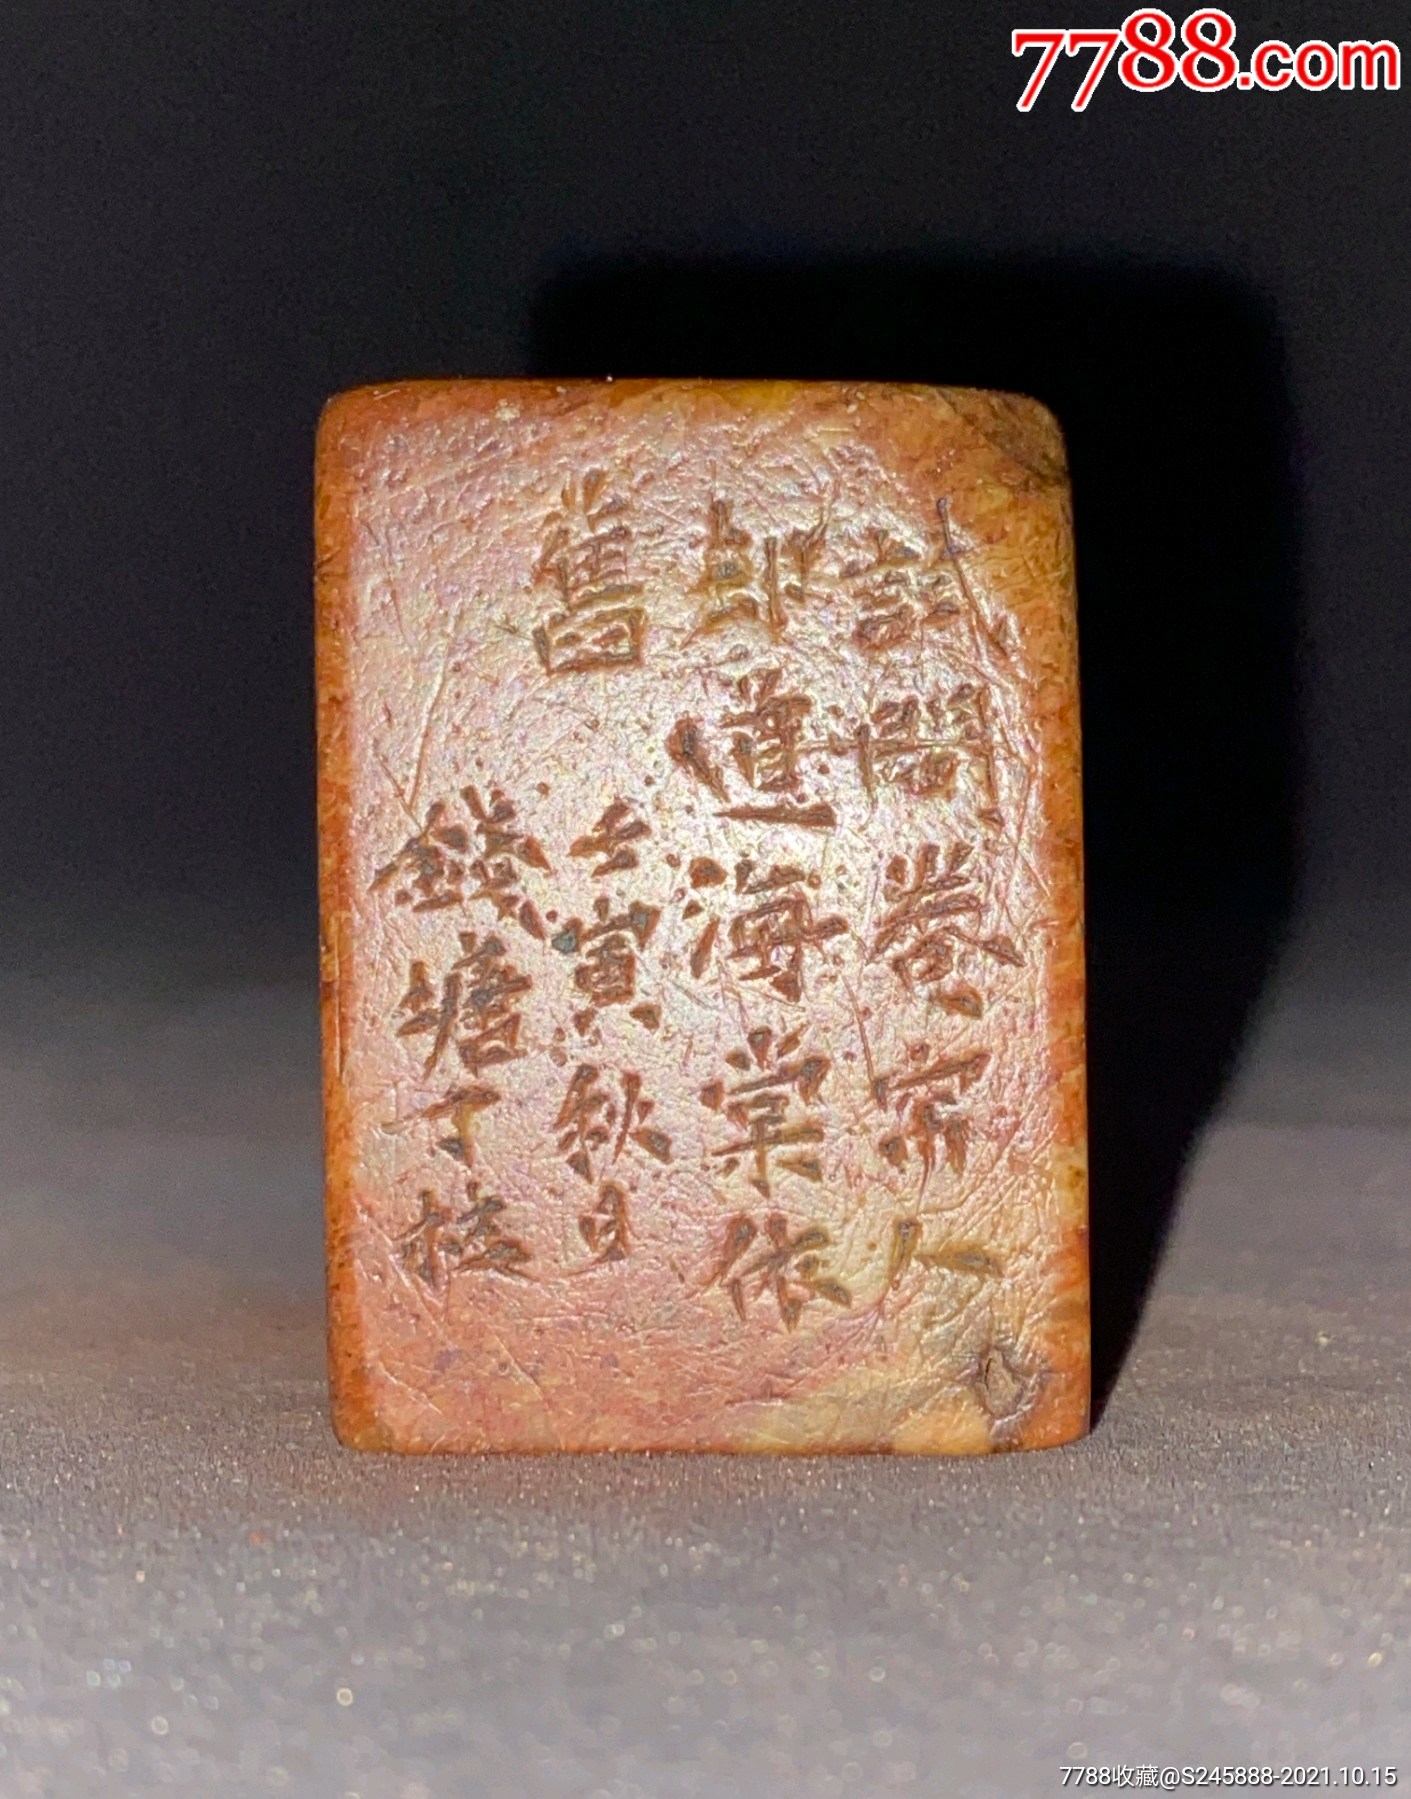 7788.com
試問卷帘人
却道海棠依
舊
壬寅秋日
錢塘丁
7788收藏@S245888-2021.10.15